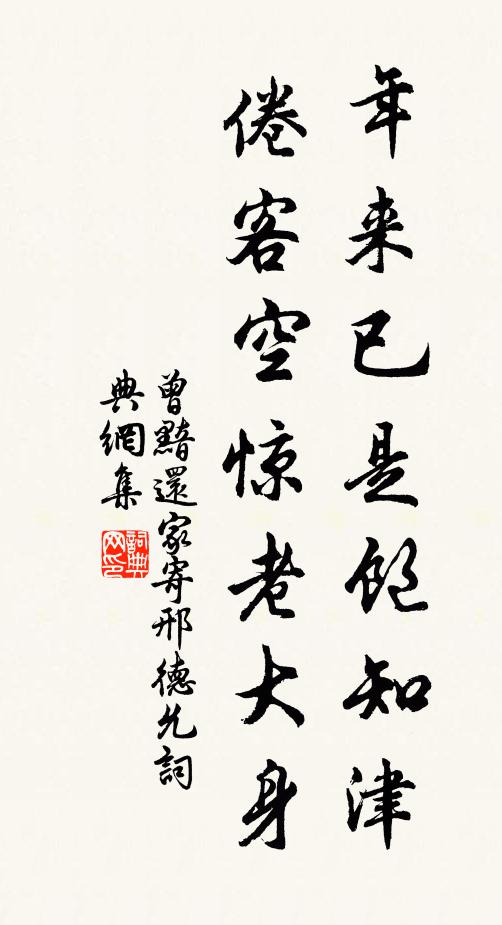 年来已是饱知津
倦客空惊老大身
曾黯還家寄邢德允詞
典網集
詞典网印